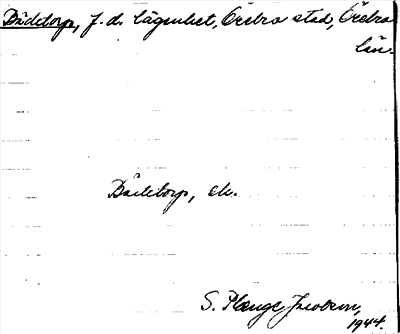 Bådetorp, f. d. lägenhet, Örebro stad, Örebro
län.
Bådetorp, ek.
S. Plenge Jacobson,
1944.